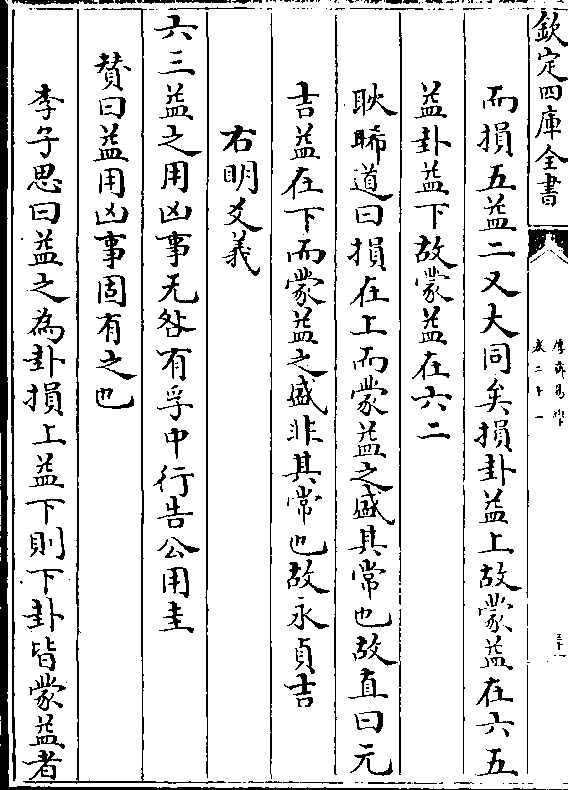 欽定四庫全書
卷二十一
而損五益二又大同矣損卦益上故蒙益在六五
益卦益下故蒙益在六二
耿睎道曰損在上而蒙益之盛其常也故直曰元
吉益在下而蒙益之盛非其常也故永貞吉
右明爻義
六三益之用凶事无咎有孚中行告公用圭
贊曰益用凶事固有之也
李子思曰益之為卦損上益下則下卦皆蒙益者